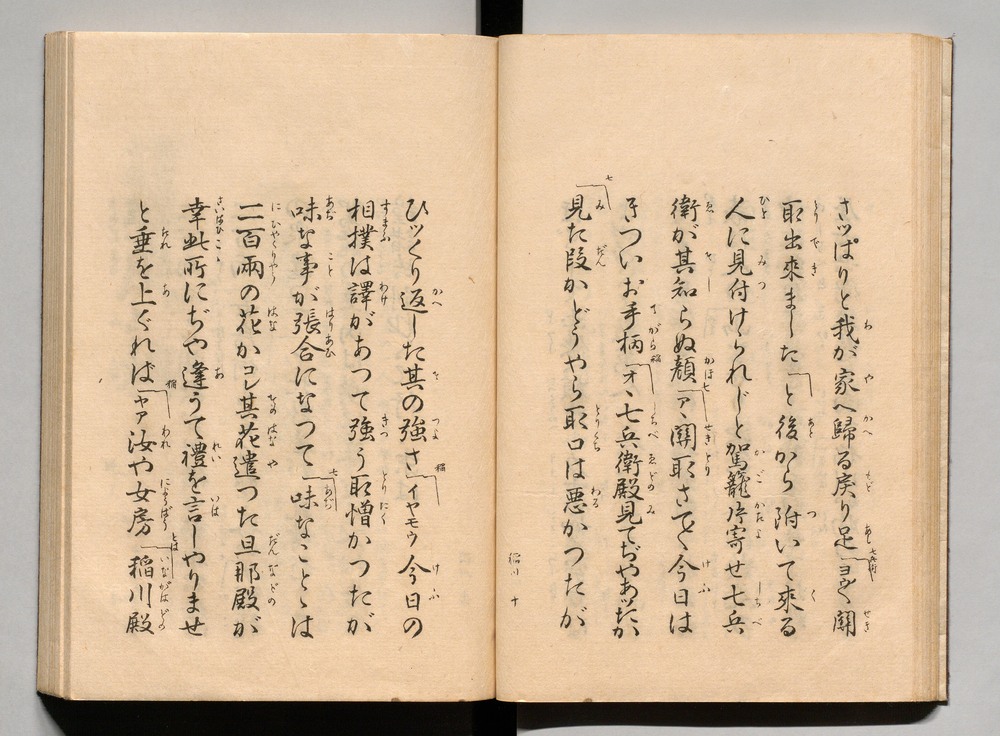 さッぱりと我が家へ歸る戾り足「ヨウ〳〵關
取出來ました「と後から附いて來る
人に見付けられじと駕籠片寄せ七兵
衛が其知らぬ顏「ア、關取さて〳〵今日は
きついお手柄「オ、七兵衛殿見てぢやあッたか
「見た段かどうやら取口は惡かつたが
稲川 十
ひッくり返した其の強さ「イヤモウ今日の
相撲は譯があつて強う取憎かつたが
味な事が張合になつて「味なことゝは
二百兩の花かコレ其花遣つた旦那殿が
幸此所にぢや逢うて禮を言しやりませ
と垂を上ぐれば「ヤア汝や女房「稲川殿